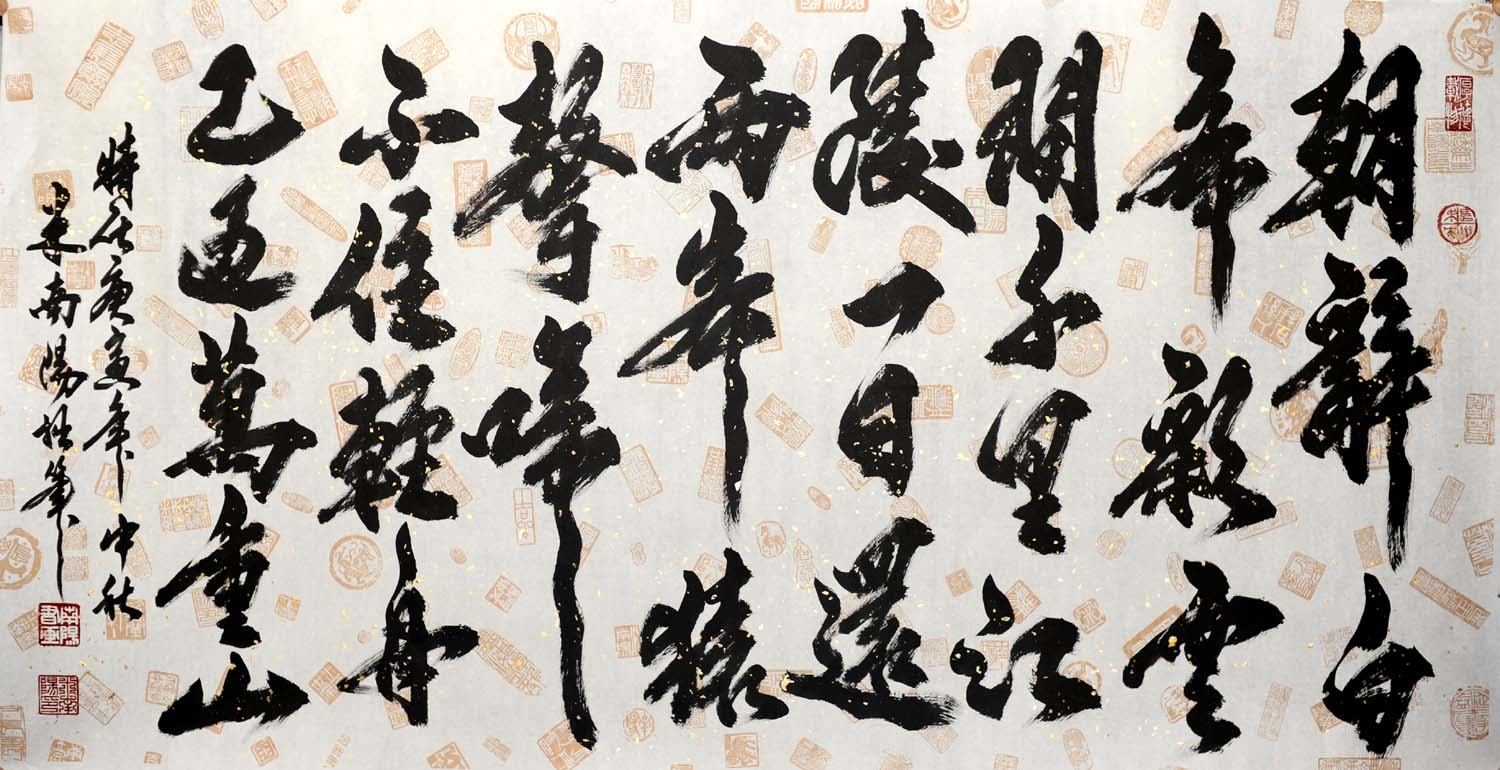 朝辭白
帝彩雲
間千里江
陵一日還
兩岸猿
聲啼
不住輕舟
已過萬重山
時在庚寅年中秋
米南陽拙筆